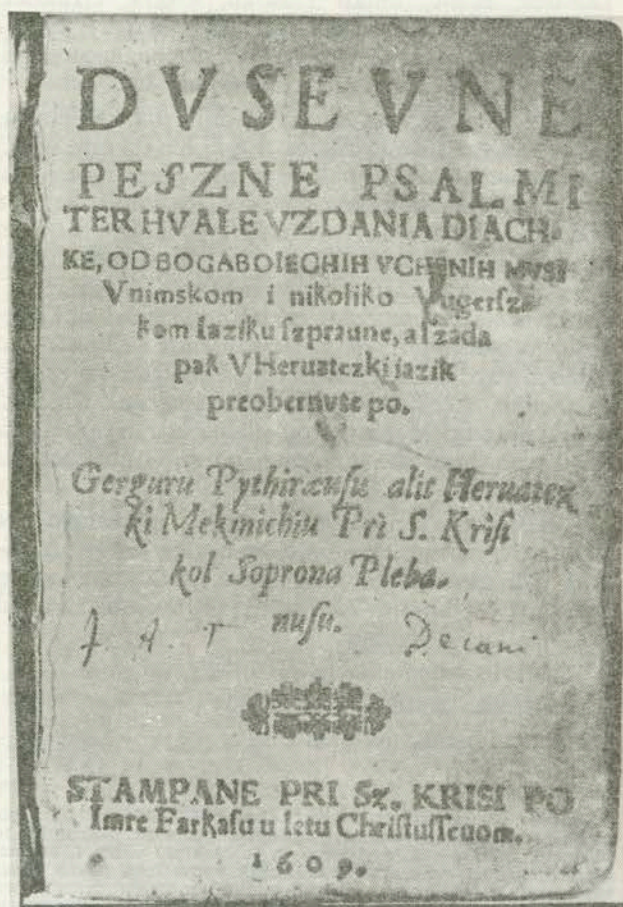 DVSEVNE
PESZNE PSALMI
TER HVALE VZDANIA DIACH-
KE, OD BOGABOIECHIH VCHENIH MVSI
Vnimskom i nikoliko Vugersz-
kom Iaziku szpraune, a szada
pak V Heruatczki iazik
preobernute po.
Gerguru Pythiræusu alit Heruatcz
ki Mekinichiu Pri S. Krisi
kol Soprona Pleba.
nusu.
J. A. T Decani
STAMPANE PRI Sz. KRISI PO
Imre Farkasu u letu Christusseuom.
1609.